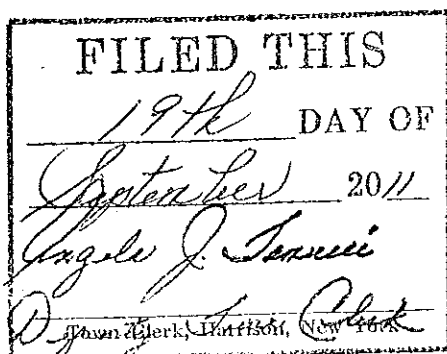 FILED THIS
19th DAY OF
September 2011
Angela J.
Deputy Town Clerk
Town Clerk, Harrison, New York